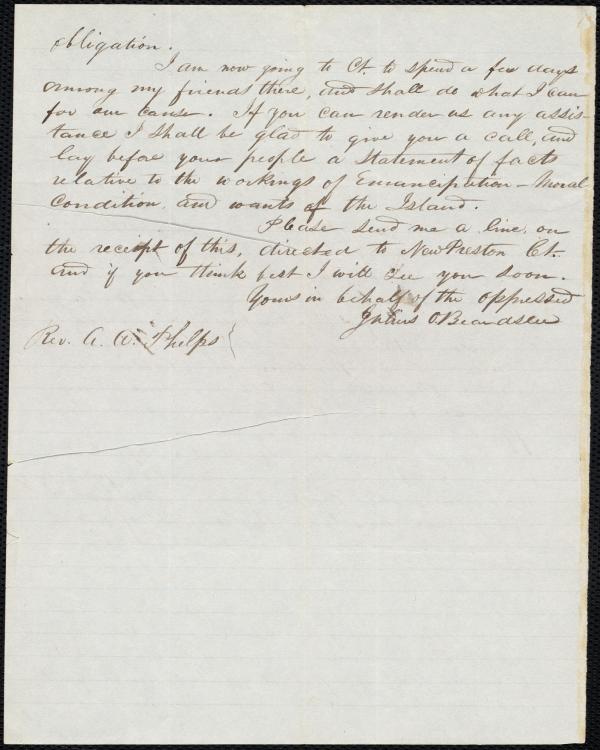 obligation.
I am now going to Ct. to spend a few days
among my friends there, and shall do what I can
for our cause. If you can render us any assis-
tance I shall be glad to give you a call, and
lay before your people a statement of facts
relative to the workings of Emancipation - Moral
Condition, and wants of the Island.
Please send me a line, on
the receipt of this, directed to New Preston Ct.
and if you think best I will see you soon.
Yours in behalf of the oppressed
Julius O Beardslee
Rev. A. A. Phelps